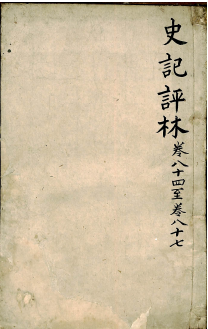 史記評林
卷八十四至卷八十七